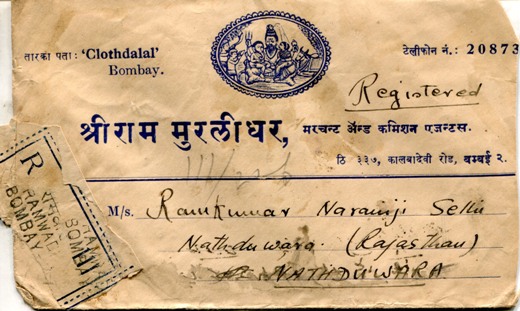 तारका पता: 'Clothdalal'
Bombay.
टेलीफोन नं.: 20873
Registered
श्रीराम मुरलीधर, मरचन्ट ॲन्ड कमिशन एजन्टस.
ठि ३३७, कालबादेवी रोड, बम्बई २.
R
RAMWADI
BOMBAY
M/s. Ramkumar Naraniji Sethi
Nathduwara. (Rajasthan)
NATHDUWARA